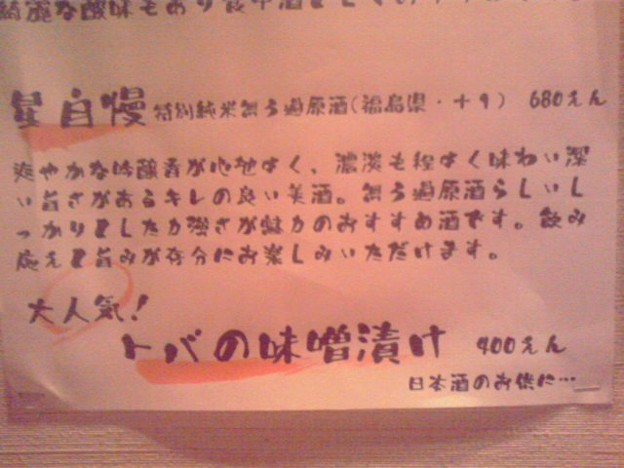 綺麗な酸味もあり食中酒として
星自慢 特別純米無ろ過原酒(福島県・+9) 680えん
爽やかな吟醸香が心地よく、濃淡も程よく味わい深
い旨さがあるキレの良い美酒。無ろ過原酒らしいし
っかりとした力強さが魅力のおすすめ酒です。飲み
応えと旨みが存分にお楽しみいただけます。
大人気!
トバの味噌漬け 400えん
日本酒のお供に…